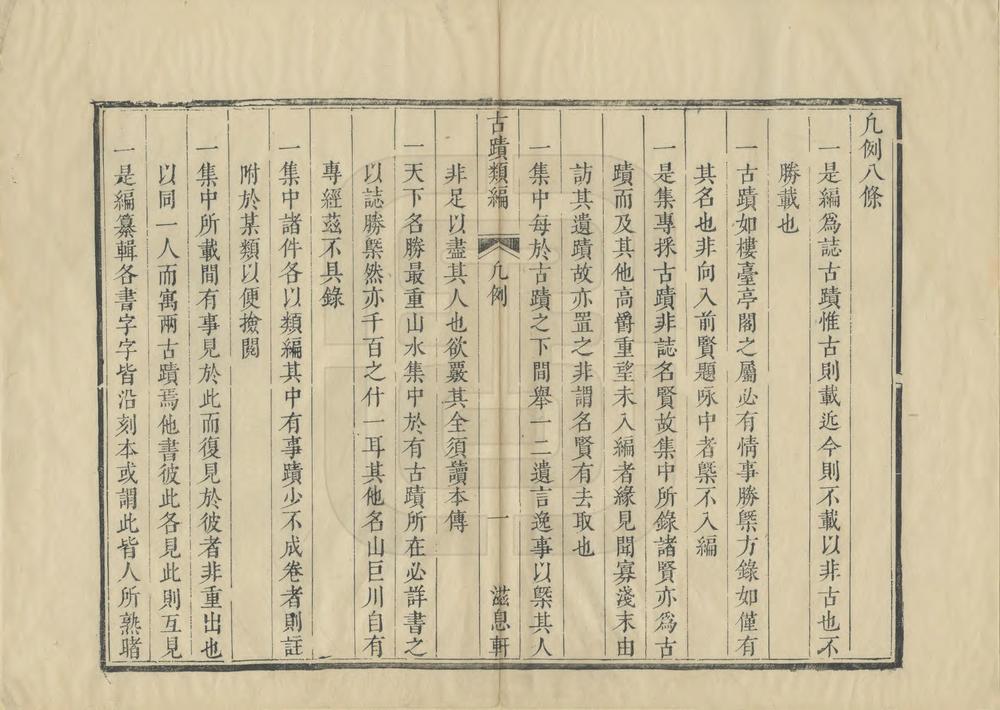 凢例八條
一是編爲誌古蹟惟古則載近今則不載以非古也不
勝載也
一古蹟如樓臺亭閣之屬必有情事勝槩方錄如僅有
其名也非向入前賢題咏中者槩不入編
一是集專採古蹟非誌名賢故集中所錄諸賢亦爲古
蹟而及其他高爵重望未入編者緣見聞寡淺末由
訪其遺蹟故亦置之非謂名賢有去取也
一集中每於古蹟之下間舉一二遺言逸事以槩其人
古蹟類編 凢例 一 滋息軒
非足以盡其人也欲覈其全須讀本傳
一天下名勝最重山水集中於有古蹟所在必詳書之
以誌勝槩然亦千百之什一耳其他名山巨川自有
專經茲不具錄
一集中諸件各以類編其中有事蹟少不成卷者則註
附於某類以便撿閱
一集中所載間有事見於此而復見於彼者非重出也
以同一人而寓兩古蹟焉他書彼此各見此則互見
一是編纂輯各書字字皆沿刻本或謂此皆人所熟睹